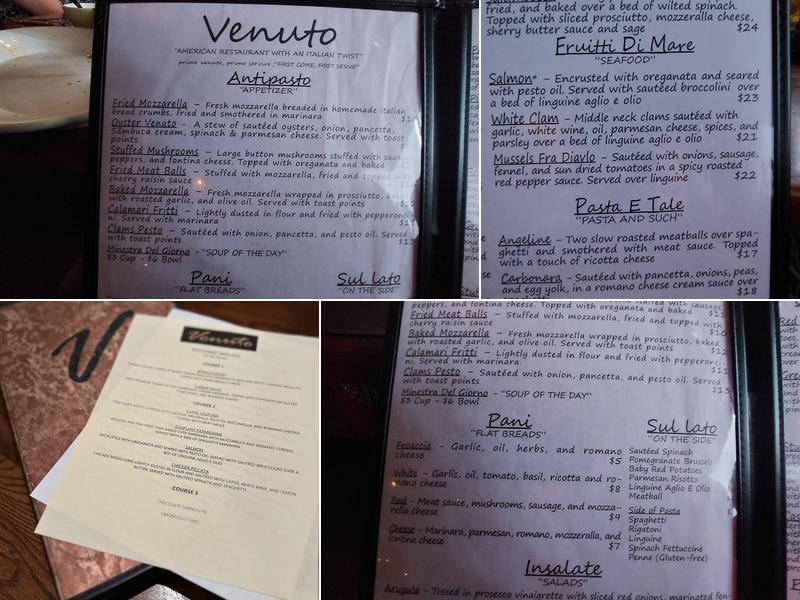 Venuto
"AMERICAN RESTAURANT WITH AN ITALIAN TWIST"
prime venuto, prime servire ;"FIRST COME, FIRST SERVE"
Antipasto
"APPETIZER"
Fried Mozzarella - Fresh mozzarella breaded in homemade italian
bread crumbs, fried and smothered in marinara
Oyster Venuto - A stew of sautéed oysters, onion, pancetta,
Sambuca cream, spinach & parmesan cheese. Served with toast
points
Stuffed Mushrooms - Large button mushrooms stuffed with
peppers, and fontina cheese. Topped with oreganata and baked
Fried Meat Balls - Stuffed with mozzarella, fried and topped with
cherry raisin sauce
Baked Mozzarella - Fresh mozzarella wrapped in prosciutto,
with roasted garlic, and olive oil. Served with toast points
Calamari Fritti - Lightly dusted in flour and fried with pepperonci-
ni. Served with marinara
Clams Pesto - Sautéed with onion, pancetta, and pesto oil. Served
with toast points
$13
Minestra Del Giorno - "SOUP OF THE DAY"
$3 Cup - $6 Bowl
Pani
"FLAT BREADS"
Sul lato
"ON THE SIDE"
fried, and baked over a bed of wilted spinach.
Topped with sliced prosciutto, mozzeralla cheese,
sherry butter sauce and sage
$24
Fruitti Di Mare
"SEAFOOD"
Salmon* - Encrusted with oreganata and seared
with pesto oil. Served with sautéed broccolini over
a bed of linguine aglio e olio
$23
White Clam - Middle neck clams sautéed with
garlic, white wine, oil, parmesan cheese, spices, and
parsley over a bed of linguine aglio e olio
$21
Mussels Fra Diavlo - Sautéed with onions, sausage,
fennel, and sun dried tomatoes in a spicy roasted
red pepper sauce. Served over linguine
$22
Pasta E Tale
"PASTA AND SUCH"
Angeline - Two slow roasted meatballs over spa-
ghetti and smothered with meat sauce. Topped
with a touch of ricotta cheese
$17
Carbonara - Sautéed with pancetta, onions, peas,
and egg yolk, in a romano cheese cream sauce over
$18
V
Venuto
COURSE 1
COURSE 2
EGGPLANT PARMIGIANA
SALMON
ENCRUSTED WITH OREGANATA AND SEARED WITH PESTO OIL. SERVED WITH SAUTÉED BROCCOLINI OVER A
BED OF LINGUINE AGLIO E OLIO
CHICKEN PICCATA
CHICKEN MEDALLIONS LIGHTLY DUSTED IN FLOUR AND SAUTÉED WITH CAPER, WHITE WINE, AND LEMON
BUTTER. SERVED WITH SAUTÉED SPINACH AND SPAGHETTI
COURSE 3
CHOCOLATE CANNOLI PIE
LIMONCELLO CAKE
peppers, and fontina cheese. Topped with oreganata and baked
Fried Meat Balls - Stuffed with mozzarella, fried and topped with
cherry raisin sauce
Baked Mozzarella - Fresh mozzarella wrapped in prosciutto, baked
with roasted garlic, and olive oil. Served with toast points
Calamari Fritti - Lightly dusted in flour and fried with pepperonci-
ni. Served with marinara
$12
Clams Pesto - Sautéed with onion, pancetta, and pesto oil. Served
with toast points
$13
Minestra Del Giorno - "SOUP OF THE DAY"
$3 Cup - $6 Bowl
Pani
"FLAT BREADS"
Focaccia - Garlic, oil, herbs, and romano
cheese
$5
White - Garlic, oil, tomato, basil, ricotta and ro-
mano cheese
$8
Red - Meat sauce, mushrooms, sausage, and mozza-
rella cheese
$9
Cheese - Marinara, parmesan, romano, mozzeralla, and
fontina cheese
$7
Sul lato
"ON THE SIDE"
Sautéed Spinach
Pomegranate Brussels
Baby Red Potatoes
Parmesan Risotto
Linguine Aglio E Olio
Meatball
Side of Pasta
Spaghetti
Rigatoni
Linguine
Spinach Fettuccine
Penne (Gluten-free)
Insalate
"SALADS"
Arugula - Tossed in prosecco vinaigrette with sliced red onions, marinated fen-